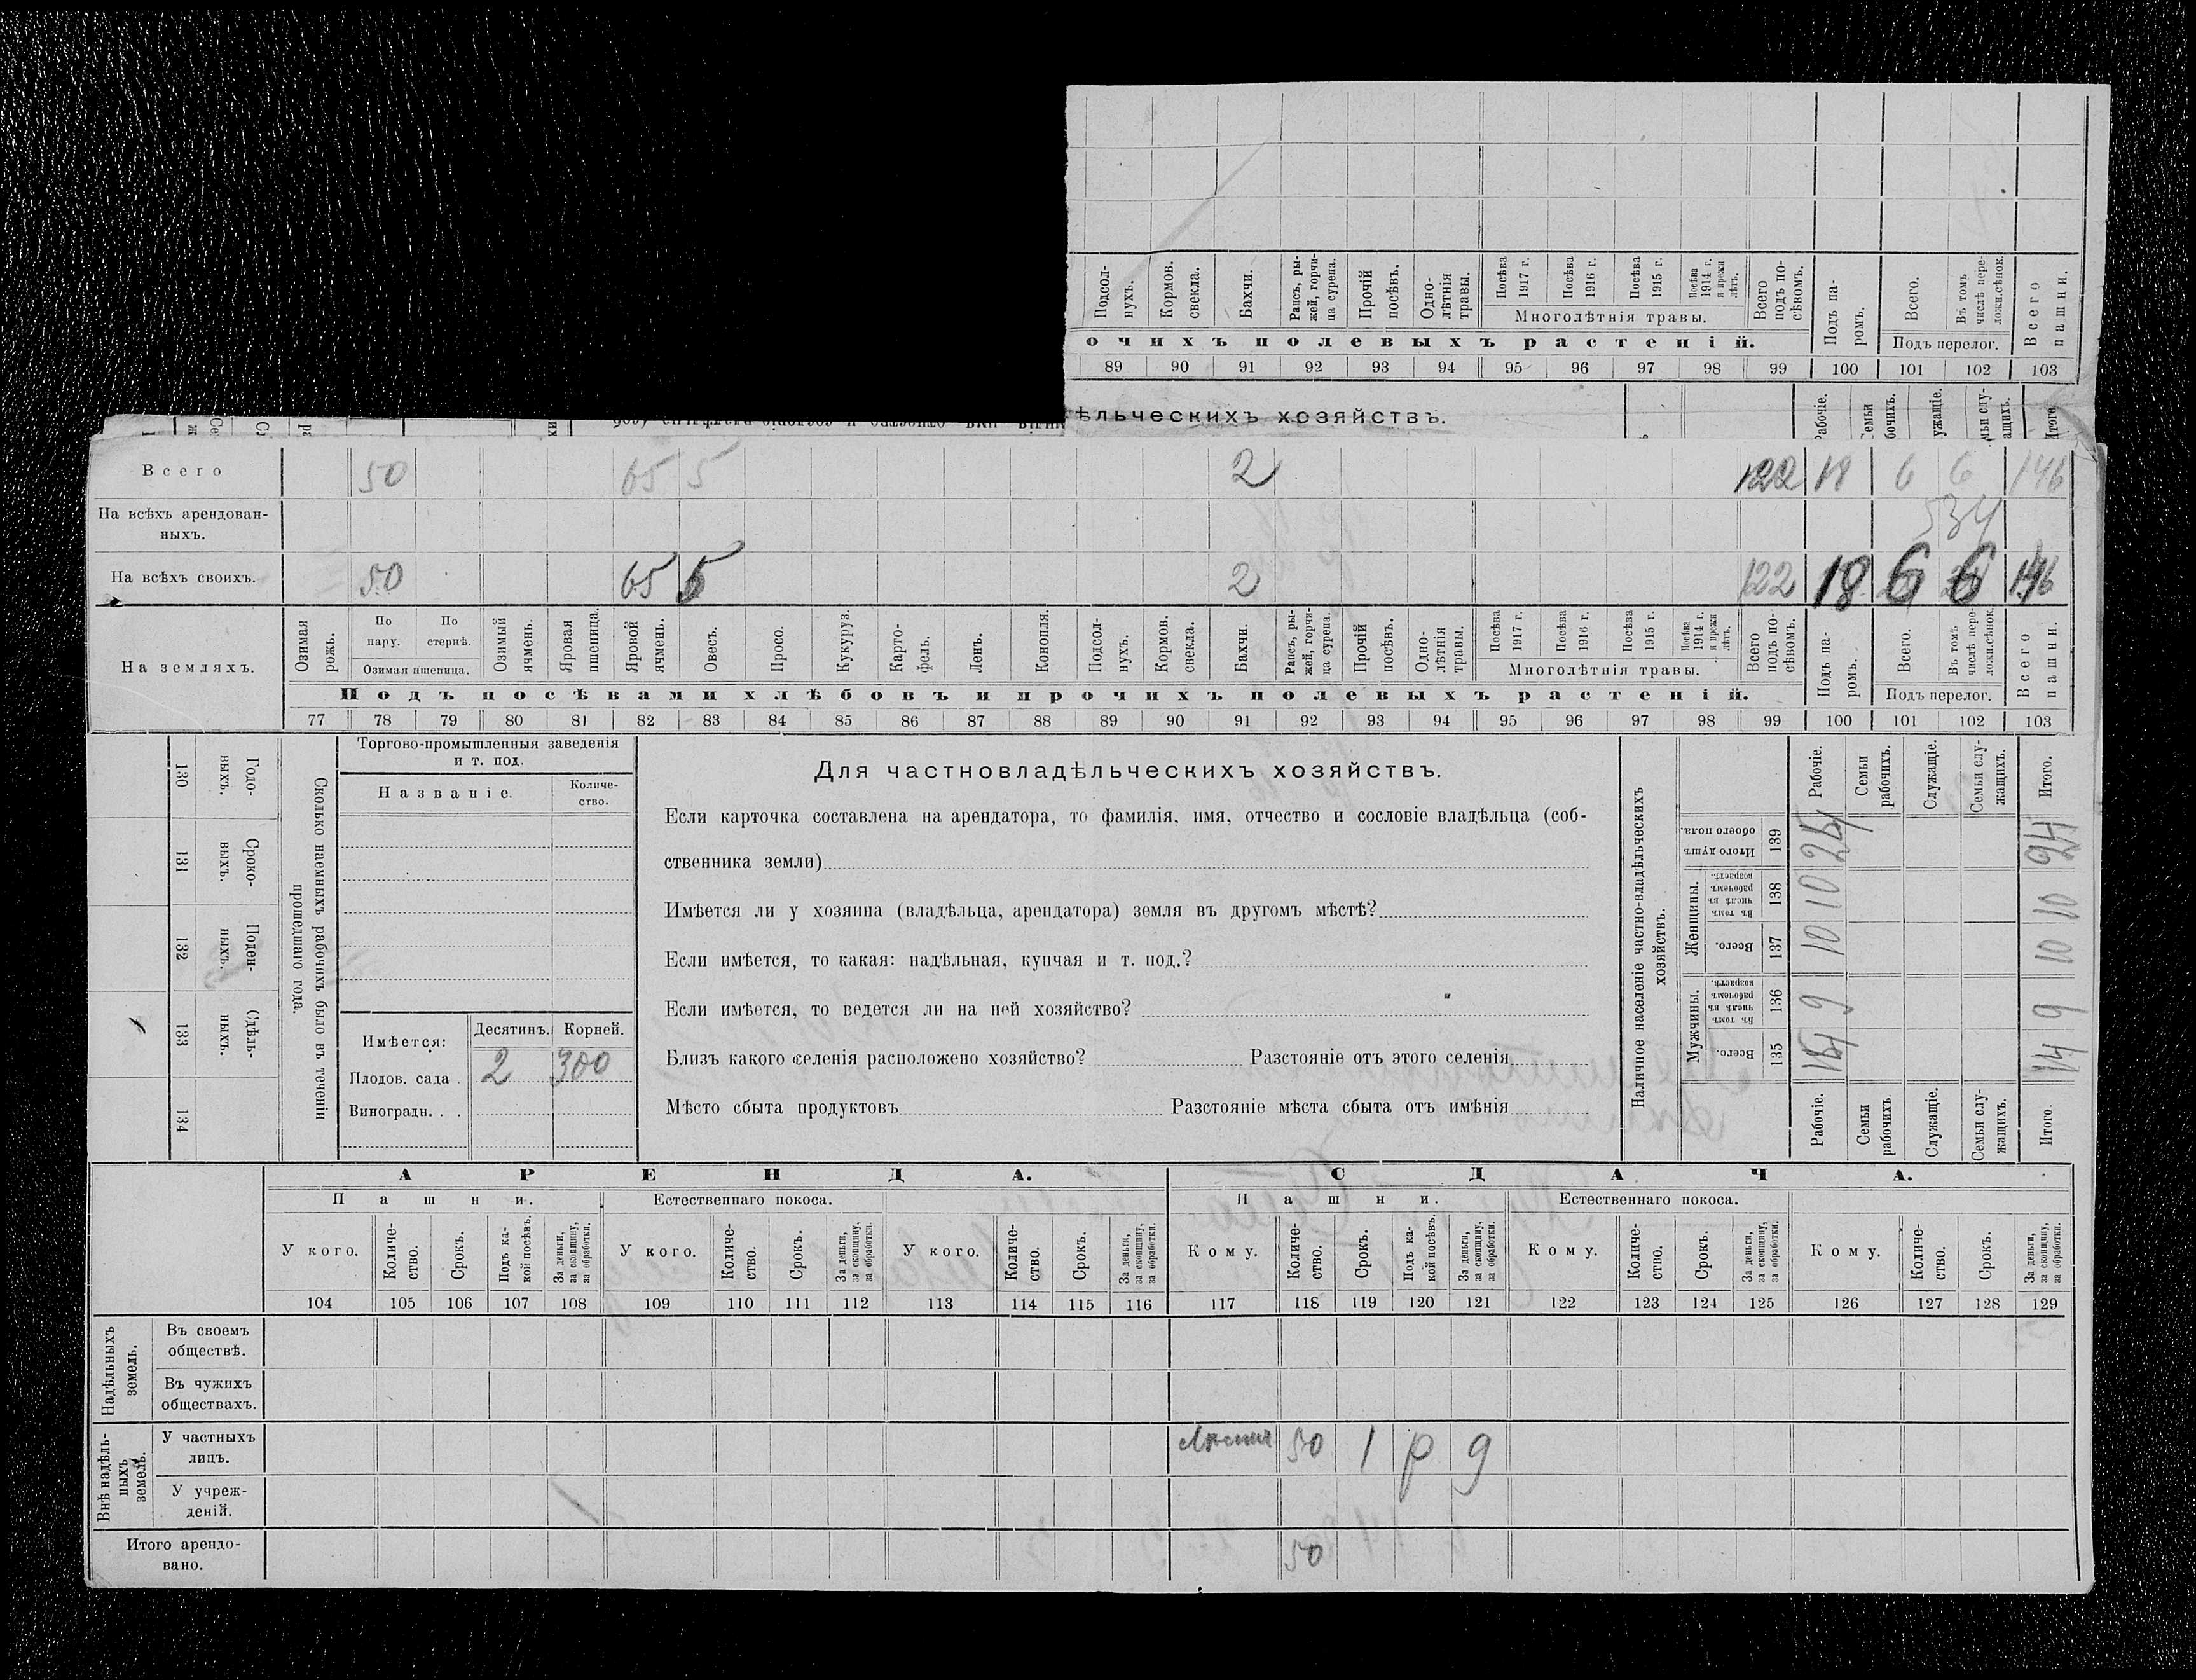 Подсол-
нухъ.
Кормов.
свекла.
Бахчи.
Рапсъ, ры-
жей, горчи-
ца сурепа.
Прочій
посѣвъ.
Одно-
лѣтнія
травы.
Посѣва
1917 г.
Посѣва
1916 г.
Посѣва
1915 г.
Посѣва
1914 г.
и прежн
лѣтъ.
Многолѣтнія травы.
Всего
подъ по-
сѣвомъ.
Подъ па-
ромъ.
Всего.
Въ томъ
числѣ пере-
ложн.сѣнок.
Подъ перелог.
Всего
пашни.
очихъ полевыхъ растеній.
89 90 91 92 93 94 95 96 97 98 99 100 101 102 103
ѣльческихъ хозяйствъ.
Всего 50 65 5 2 122 18 6 6 146
На всѣхъ арендован-
ныхъ.
534
На всѣхъ своихъ. 50 65 5 2 122 18 6 6 146
На земляхъ.
Озимая
рожь.
По
пару.
По
стернѣ.
Озимая пшеница.
Озимый
ячмень.
Яровая
пшеница.
Яровой
ячмень.
Овесъ.
Просо.
Кукуруз.
Карто-
фель.
Ленъ.
Конопля.
Подсол-
нухъ.
Кормов.
свекла.
Бахчи.
Рапсъ, ры-
жей, горчи-
ца сурепа.
Прочій
посѣвъ.
Одно-
лѣтнія
травы.
Посѣва
1917 г.
Посѣва
1916 г.
Посѣва
1915 г.
Посѣва
1914 г.
и прежн
лѣтъ.
Многолѣтнія травы.
Всего
подъ по-
сѣвомъ.
Подъ па-
ромъ.
Всего.
Въ томъ
числѣ пере-
ложн.сѣнок.
Подъ перелог.
Всего
пашни.
Подъ посѣвами хлѣбовъ и прочихъ полевыхъ растеній.
77 78 79 80 81 82 83 84 85 86 87 88 89 90 91 92 93 94 95 96 97 98 99 100 101 102 103
130
Годо-
выхъ.
131
Сроко-
выхъ.
132
Поден-
ныхъ.
133
Сдѣль-
ныхъ.
134
Сколько наемныхъ рабочихъ было въ теченіи
прошедшаго года.
Торгово-промышленныя заведенія
и т. под.
Названіе.
Количе-
ство.
Имѣется:
Десятинъ.
Корней.
Плодов. сада . 2 300
Виноградн. . .
Для частновладѣльческихъ хозяйствъ.
Если карточка составлена на арендатора, то фамилія, имя, отчество и сословіе владѣльца (соб-
ственника земли)
Имѣется ли у хозяина (владѣльца, арендатора) земля въ другомъ мѣстѣ?
Если имѣется, то какая: надѣльная, купчая и т. под.?
Если имѣется, то ведется ли на ней хозяйство?
Близъ какого селенія расположено хозяйство? Разстояніе отъ этого селенія
Мѣсто сбыта продуктовъ Разстояніе мѣста сбыта отъ имѣнія
Наличное населеніе частно-владѣльческихъ
хозяйствъ.
Рабочіе.
Семьи
рабочихъ.
Служащіе.
Семьи слу-
жащихъ.
Итого.
Итого душъ
обоего пола.
139 24 24
Женщины.
Въ томъ
числѣ въ
рабочемъ
возрастѣ.
138 10 10
Всего.
137 10 10
Мужчины.
Въ томъ
числѣ въ
рабочемъ
возрастѣ.
136 9 9
Всего.
135 14 14
Рабочіе.
Семьи
рабочихъ.
Служащіе.
Семьи слу-
жащихъ.
Итого.
АРЕНДА. СДАЧА.
Пашни. Естественнаго покоса. Пашни. Естественнаго покоса.
У кого.
Количе-
ство.
Срокъ.
Подъ ка-
кой посѣвъ.
За деньги,
за скопщину,
за обработки.
У кого.
Количе-
ство.
Срокъ.
За деньги,
за скопщину,
за обработки.
У кого.
Количе-
ство.
Срокъ.
За деньги,
за скопщину,
за обработки.
Кому.
Количе-
ство.
Срокъ.
Подъ ка-
кой посѣвъ.
За деньги,
за скопщину,
за обработки.
Кому.
Количе-
ство.
Срокъ.
За деньги,
за скопщину,
за обработки.
Кому.
Количе-
ство.
Срокъ.
За деньги,
за скопщину,
за обработки.
104 105 106 107 108 109 110 111 112 113 114 115 116 117 118 119 120 121 122 123 124 125 126 127 128 129
Надѣльныхъ
земель.
Въ своемъ
обществѣ.
Въ чужихъ
обществахъ.
Внѣ надѣль-
ныхъ
земель.
У частныхъ
лицъ.
50 1 р д
У учреж-
деній.
Итого арендо-
вано.
50